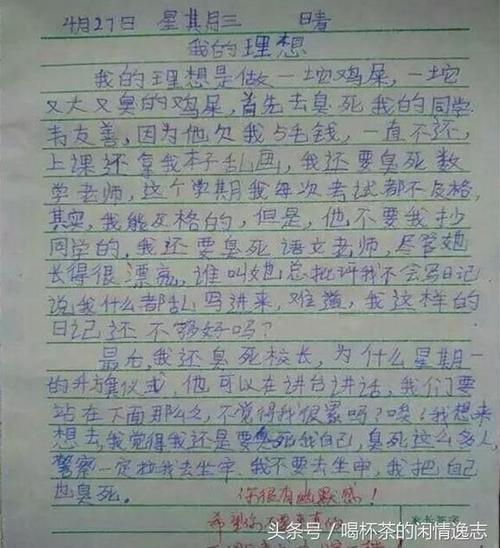 4月27日 星其月三 晴
我的理想
我的理想是做一坨鸡屎，一坨
又大又臭的鸡屎，首先去臭死我的同学
韦友善，因为他欠我5毛钱，一直不还，
上课还拿我本子乱画，我还要臭死数
学老师，这个学期我每次考试都不及格，
其实，我能及格的，但是，他不要我抄
同学的，我还要臭死语文老师，尽管她
长得很漂亮，谁叫她总批评我不会写日记
说我什么都乱写进来，难道，我这样的
日记还不够好吗？
最后，我还臭死校长，为什么星期一
的升旗仪式，他可以在讲台讲话，我们要
站在下面那么久，不觉得我很累吗？唉！我想来
想去，我觉得我还是要臭死我自己，臭死这么多人，
警察一定拉我去坐牢，我不要去坐牢，我把自己
也臭死。
你很有幽默感！
希望你
头条号／喝杯茶的闲情逸志